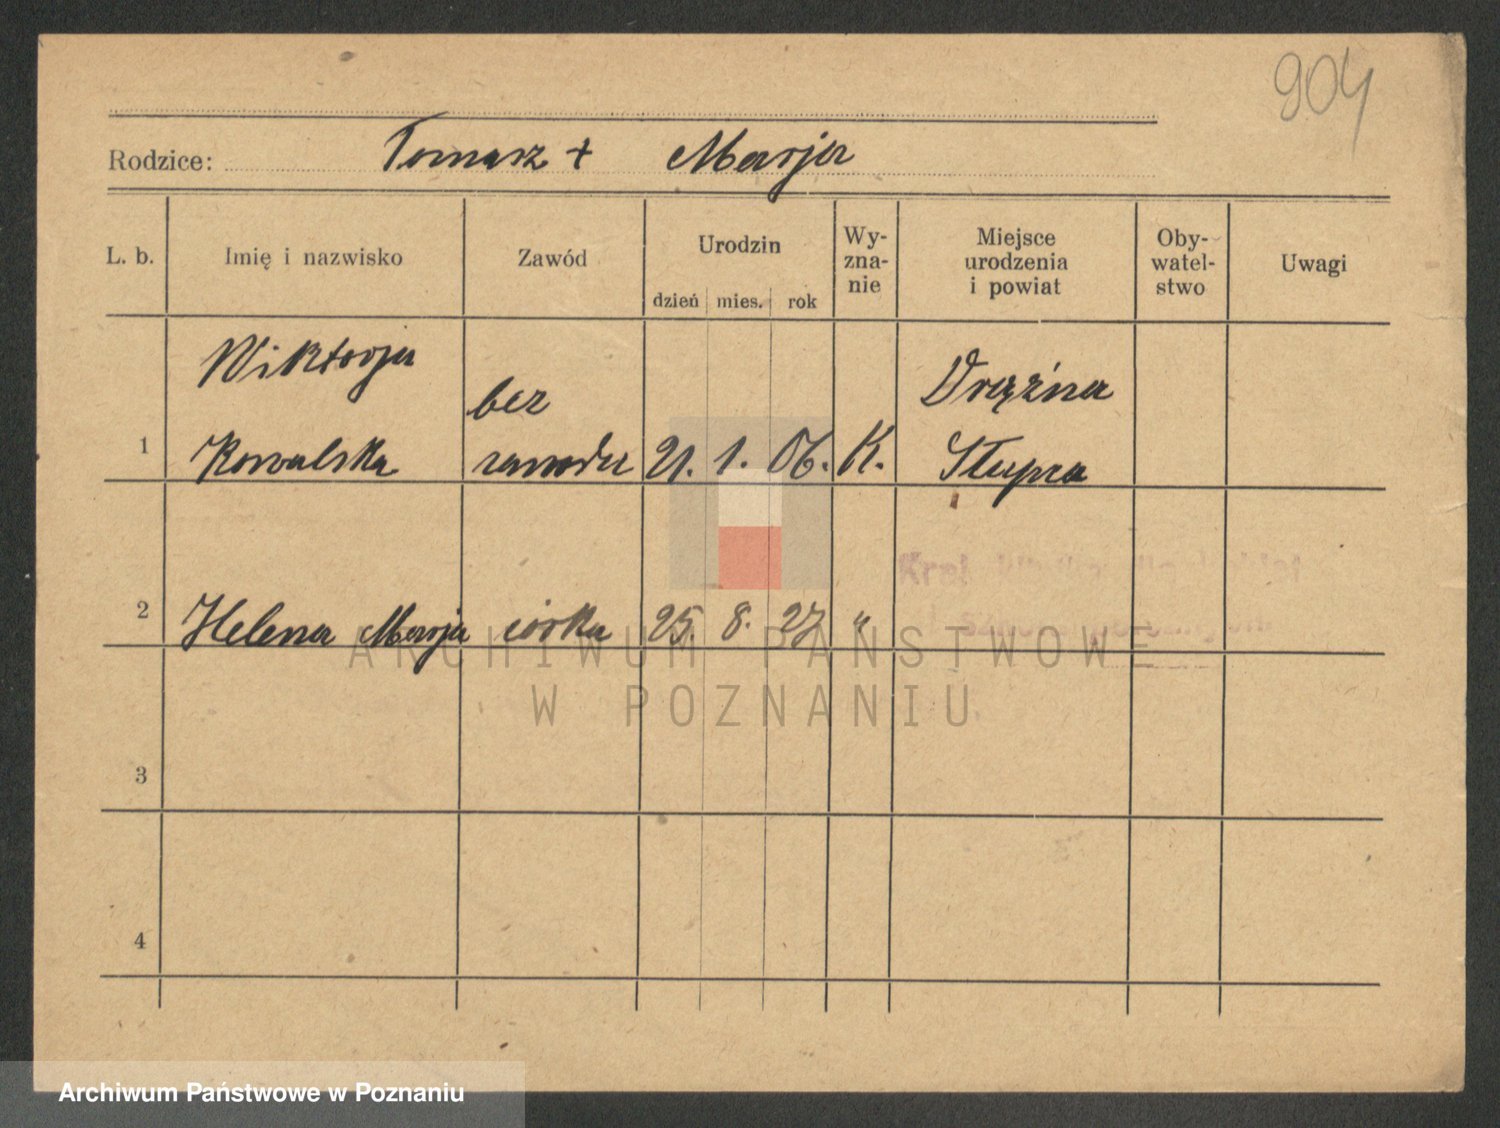 904
Rodzice: Tomasz + Marja
L. b. Imię i nazwisko Zawód Urodzin dzień mies. rok Wy-zna-nie Miejsce urodzenia i powiat Oby-watel-stwo Uwagi
Wiktorja bez Drążna
1 Kowalska zawodu 21. 1. 06. K. Słupca
2 Helena Marja córka 25. 8. 27 "
3
4
ARCHIWUM PAŃSTWOWE
W POZNANIU
Archiwum Państwowe w Poznaniu